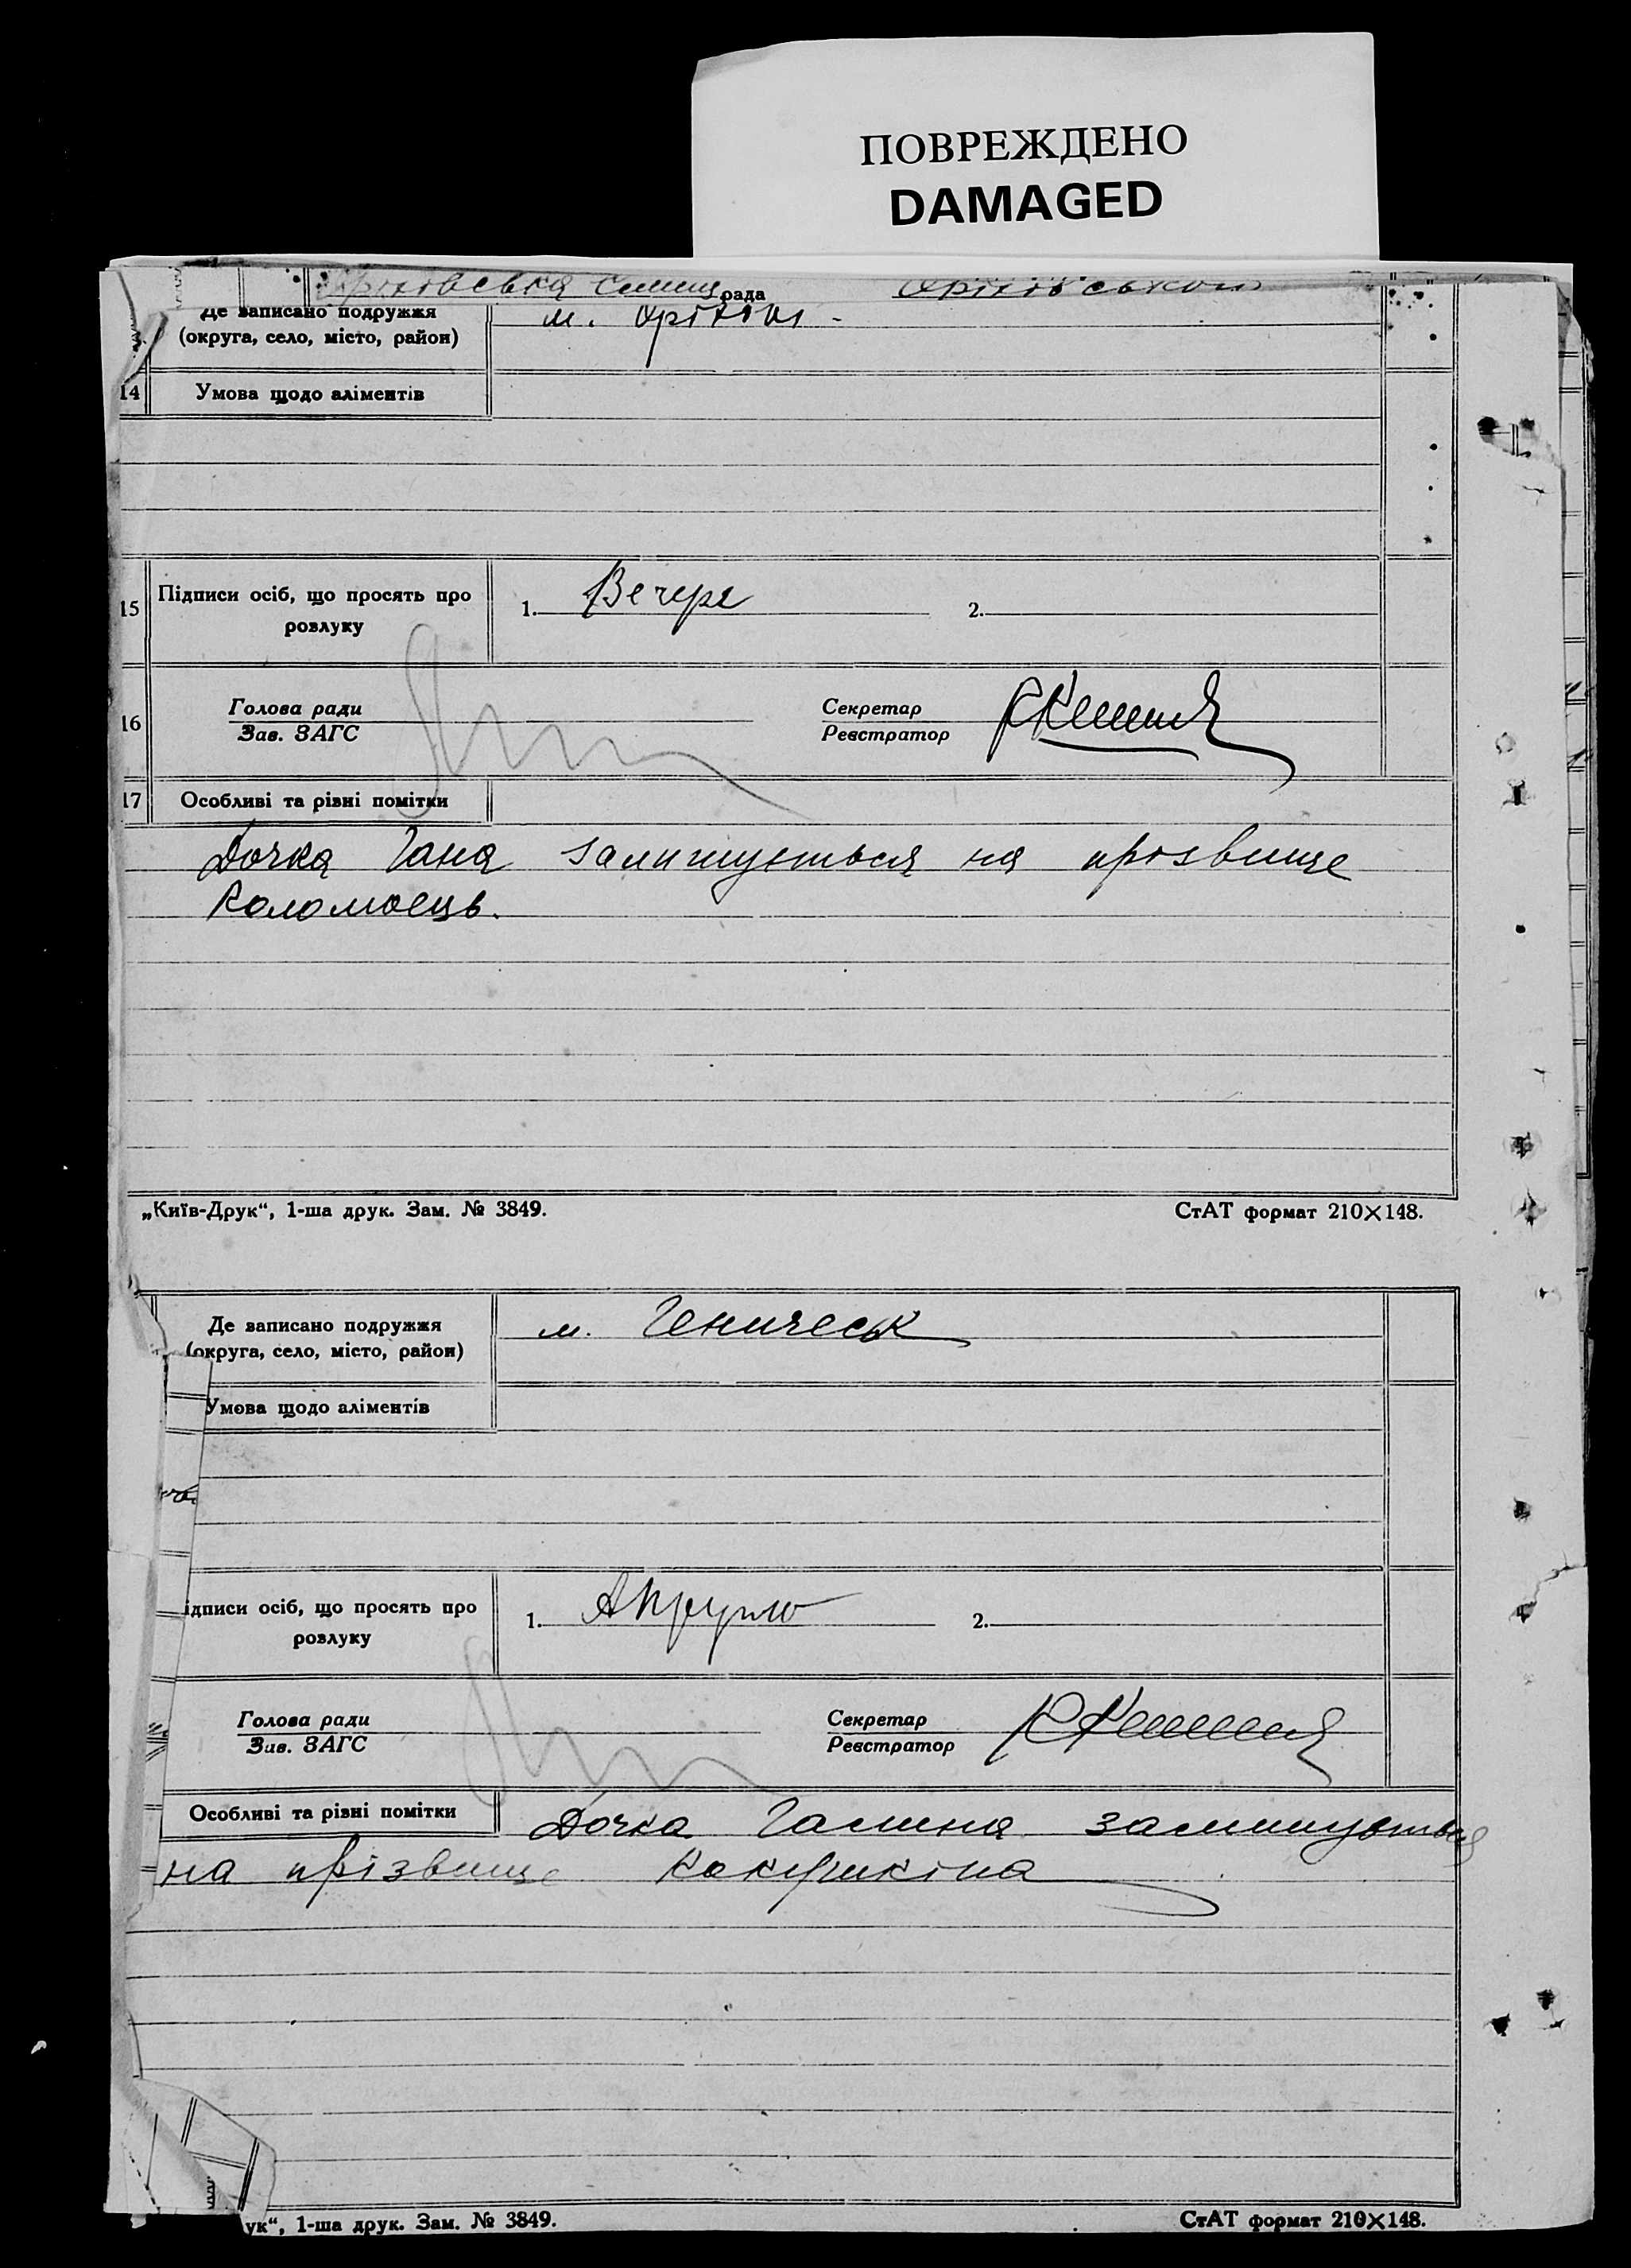 ПОВРЕЖДЕНО
DAMAGED
рада
Де записано подружжя
(округа, село, місто, район)
м. Оріхів -
14 Умова щодо аліментів
15 Підписи осіб, що просять про розлуку
1. 2.
16 Голова ради
Зав. ЗАГС
Секретар
Реєстратор
17 Особливі та рівні помітки
Дочка Гана залишується на прозвище
Коломоець.
„Київ-Друк“, 1-ша друк. Зам. № 3849. СтАТ формат 210×148.
Де записано подружжя
(округа, село, місто, район)
м. Геническ
Умова щодо аліментів
ідписи осіб, що просять про
розлуку
1. 2.
Голова ради
Зав. ЗАГС
Секретар
Реєстратор
Особливі та рівні помітки Дочка Галина залишується
на прізвище
ук“, 1-ша друк. Зам. № 3849. СтАТ формат 210×148.